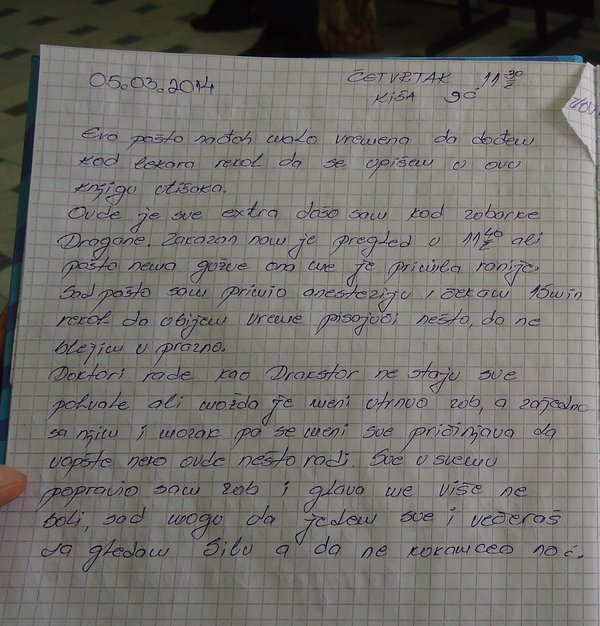 05.03.2014 ČETVRTAK 11 30
KIŠA 9c°
Evo pošto nađoh malo vremena da dođem
kod lekara rekoh da se upišem u ovu
knjigu utisaka.
Ovde je sve extra došo sam kod zubarke
Dragane. Zakazan nam je pregled u 11 40 ali
pošto nema gužve ona me je primila ranije.
Sad pošto sam primio anesteziju i čekam 15min
rekoh da ubijem vreme pisajući nešto, da ne
blejim u prazno.
Doktori rade kao Drakstor ne staju sve
pohvale ali možda je meni utrnuo zub, a zajedno
sa njim i mozak pa se meni sve pričinjava da
uopšte neko ovde nešto radi. Sve u svemu
popravio sam zub i glava me više ne
boli, sad mogu da jedem sve i večeras
da gledam Silu a da ne kukam ceo noć.